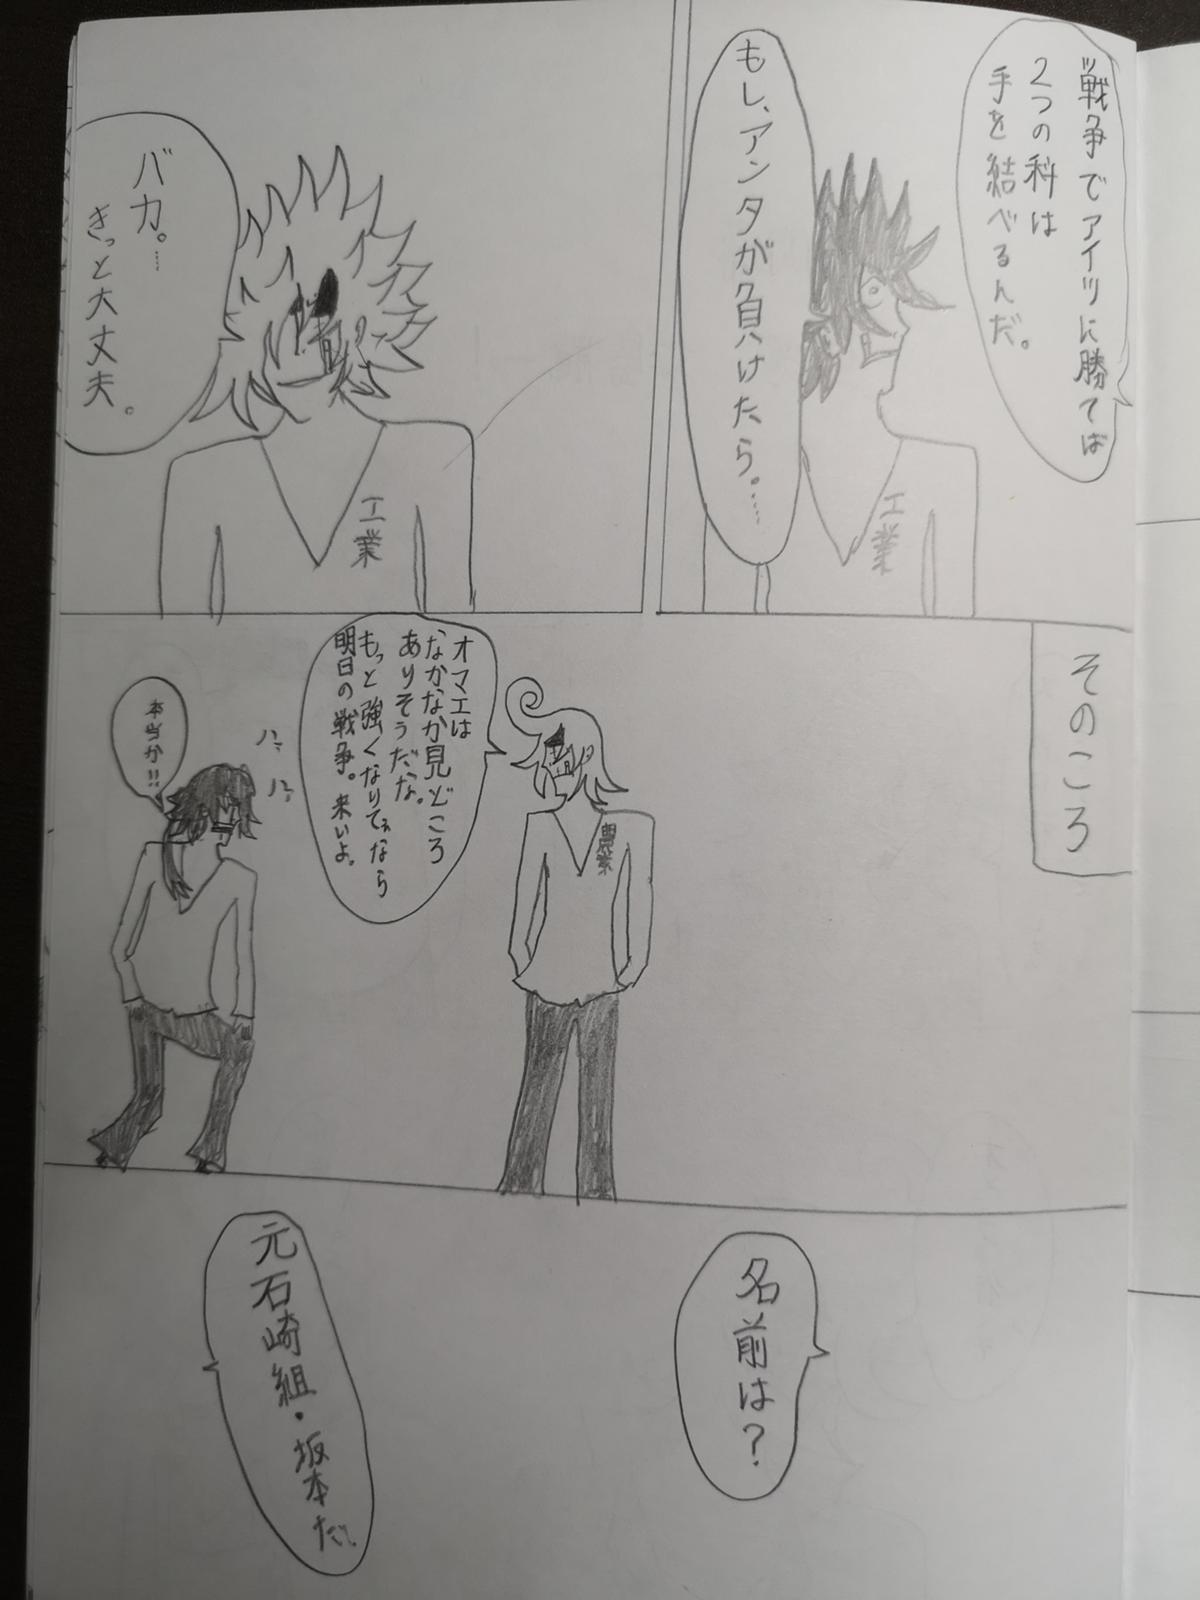 戦争でアイツに勝てば
2つの科は
手を結べるんだ。
もし、アンタが負けたら。……
工業
バカ。……
きっと大丈夫。
工業
そのころ
オマエは
なかなか見どころ
ありそうだな。
もっと強くなりてぇなら
明日の戦争。来いよ。
農業
ハァ
ハァ
本当か!!
名前は?
元石崎組・坂本だ。